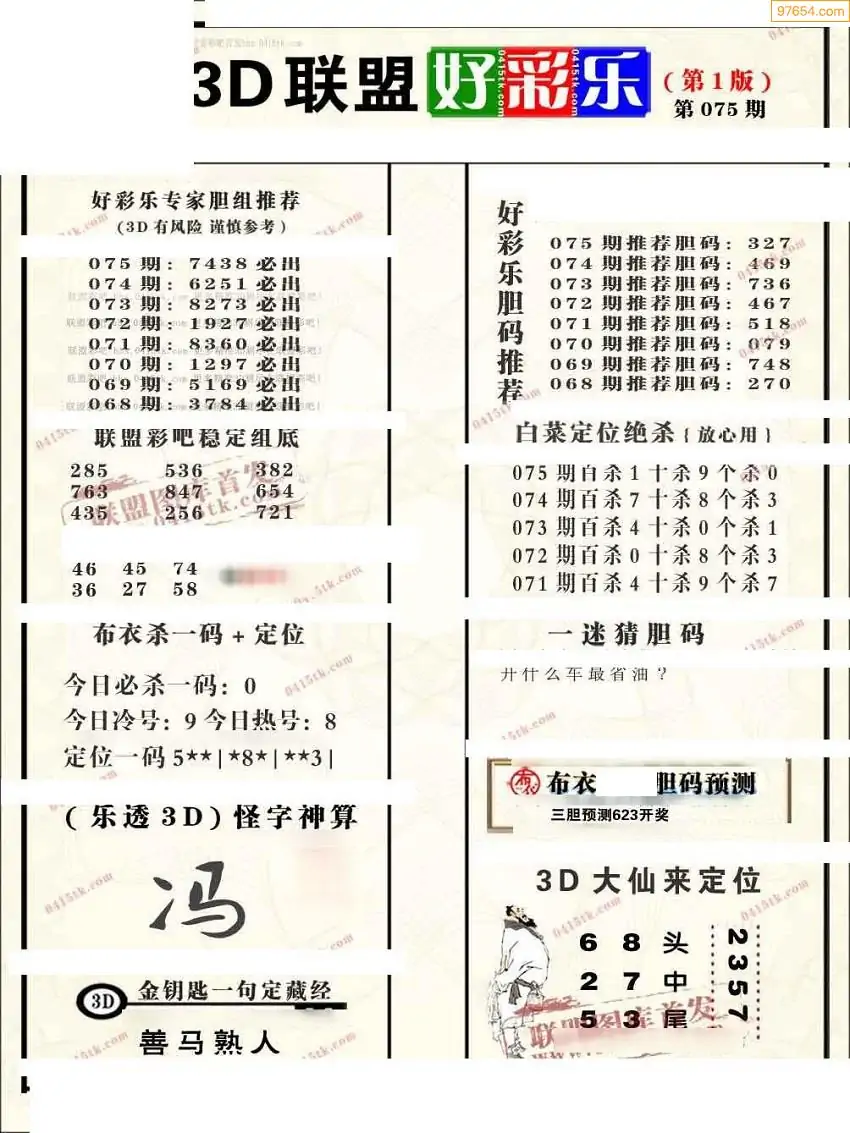 97654.com
3D联盟好彩乐
(第1版)
第075期
好彩乐专家胆组推荐
(3D有风险 谨慎参考)
075期:7438必出
074期:6251必出
073期:8273必出
072期:1927必出
071期:8360必出
070期:1297必出
069期:5169必出
068期:3784必出
联盟彩吧稳定组底
285 536 382
763 847 654
435 256 721
联盟图库首发
0415tk.com
46 45 74
36 27 58
布衣杀一码+定位
今日必杀一码:0
今日冷号:9今日热号:8
定位一码5**|*8*|**3|
(乐透3D)怪字神算
冯
3D 金钥匙一句定藏经
善马熟人
好彩乐胆码推荐
075期推荐胆码:327
074期推荐胆码:469
073期推荐胆码:736
072期推荐胆码:467
071期推荐胆码:518
070期推荐胆码:079
069期推荐胆码:748
068期推荐胆码:270
白菜定位绝杀{放心用}
075期百杀1十杀9个杀0
074期百杀7十杀8个杀3
073期百杀4十杀0个杀1
072期百杀0十杀8个杀3
071期百杀4十杀9个杀7
一迷猜胆码
开什么车最省油?
布衣 胆码预测
三胆预测623开奖
3D大仙来定位
6 8 头
2 7 中
5 3 尾
2357
联盟图库首发